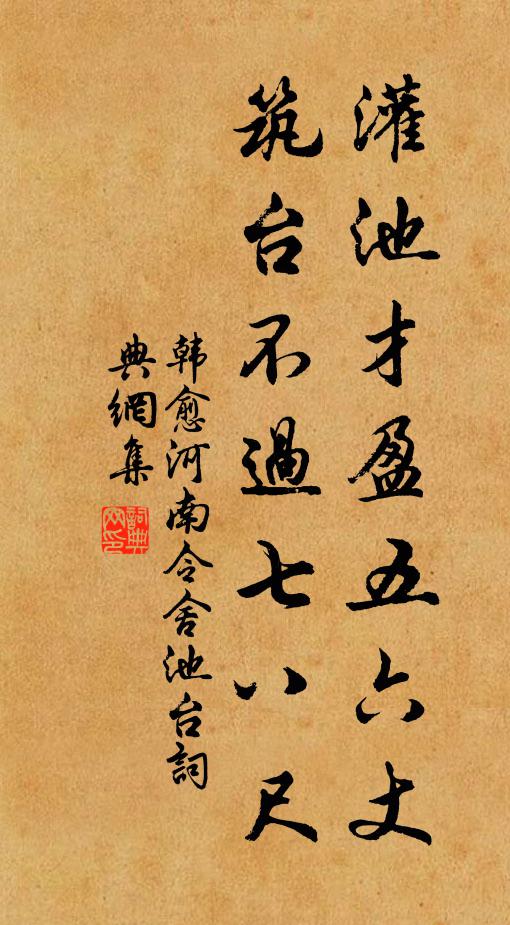 灌池才盈五六丈
筑台不過七八尺
韩愈河南令舍池台詞
典網集
詞典網印